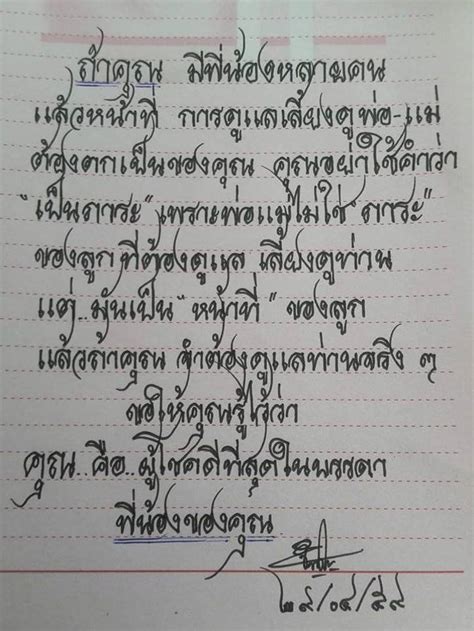 ถ้าคุณ มีพี่น้องหลายคน
แล้วหน้าที่ การดูแลเลี้ยงดูพ่อ-แม่
ต้องตกเป็นของคุณ คุณอย่าใช้คำว่า
"เป็นภาระ" เพราะพ่อแม่ไม่ใช่ "ภาระ"
ของลูก ที่ต้องดูแล เลี้ยงดูท่าน
แต่..มันเป็น "หน้าที่" ของลูก
แล้วถ้าคุณ จำต้องดูแลท่านจริง ๆ
ขอให้คุณรู้ไว้ว่า
คุณ..คือ..ผู้โชคดีที่สุดในบรรดา
พี่น้องของคุณ
๒๙/๐๔/๕๙